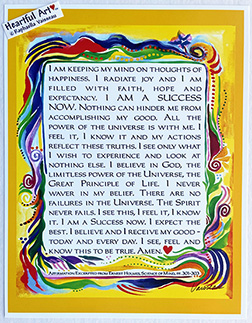 Heartful Art
© Raphaella Vaisseau
I AM KEEPING MY MIND ON THOUGHTS OF
HAPPINESS. I RADIATE JOY AND I AM
FILLED WITH FAITH, HOPE AND
EXPECTANCY. I AM A SUCCESS
NOW. NOTHING CAN HINDER ME FROM
ACCOMPLISHING MY GOOD. ALL THE
POWER OF THE UNIVERSE IS WITH ME. I
FEEL IT, I KNOW IT AND MY ACTIONS
REFLECT THESE TRUTHS. I SEE ONLY WHAT
I WISH TO EXPERIENCE AND LOOK AT
NOTHING ELSE. I BELIEVE IN GOD, THE
LIMITLESS POWER OF THE UNIVERSE, THE
GREAT PRINCIPLE OF LIFE. I NEVER
WAVER IN MY BELIEF. THERE ARE NO
FAILURES IN THE UNIVERSE. THE SPIRIT
NEVER FAILS. I SEE THIS, I FEEL IT, I KNOW
IT. I AM A SUCCESS NOW. I EXPECT THE
BEST. I BELIEVE AND I RECEIVE MY GOOD -
TODAY AND EVERY DAY. I SEE, FEEL AND
KNOW THIS TO BE TRUE. AMEN.
AFFIRMATION EXCERPTED FROM ERNEST HOLMES, SCIENCE OF MIND, PP. 301-303